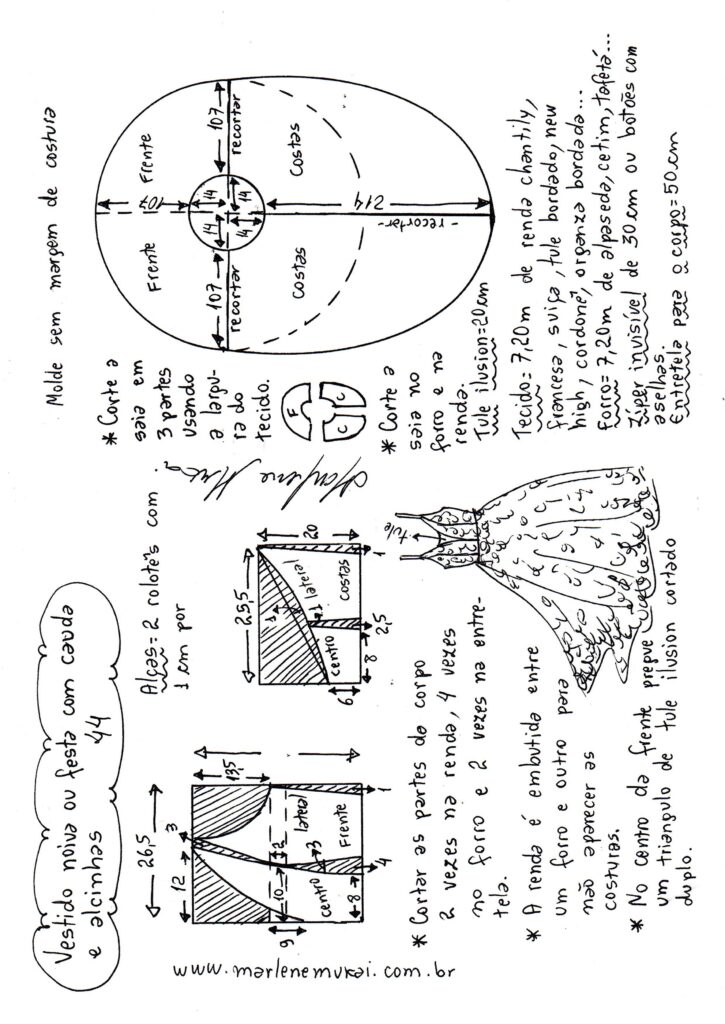 Vestido noiva ou festa com cauda
e alcinhas 44
Molde sem margem de costura
Alças= 2 rolotês com
1 cm por
26,5
3
12
13,5
10
2
lateral
9
centro
3
Frente
8
4
1
25,5
20
3
lateral
1
centro
costas
6
8
2,5
1
* Corte a
saia em
3 partes
usando
a largu-
ra do
tecido.
F
C
C
* Corte a
saia no
forro e na
renda.
Tule ilusion=20cm
Frente
Frente
107
107
107
recortar
recortar
14
14
14
14
Costas
Costas
214
-recortar-
www.marlenemukai.com.br
Marlene Mukai
* Cortar as partes do corpo
2 vezes na renda, 4 vezes
no forro e 2 vezes na entre-
tela.
* A renda é embutida entre
um forro e outro para
não aparecer as
costuras.
* No centro da frente pregue
um triangulo de tule ilusion cortado
duplo.
tule
Tecido= 7,20m de renda chantily,
francesa, suiça, tule bordado, new
high, cordonê, organza bordada...
Forro= 7,20m de alpaseda, cetim, tafetá...
Zíper invisível de 30cm ou botões com
aselhas.
Entretela para o corpo=50cm